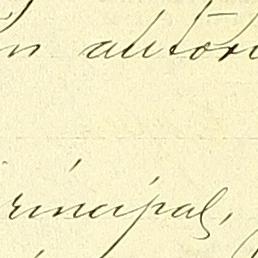 in autor
rincipal,